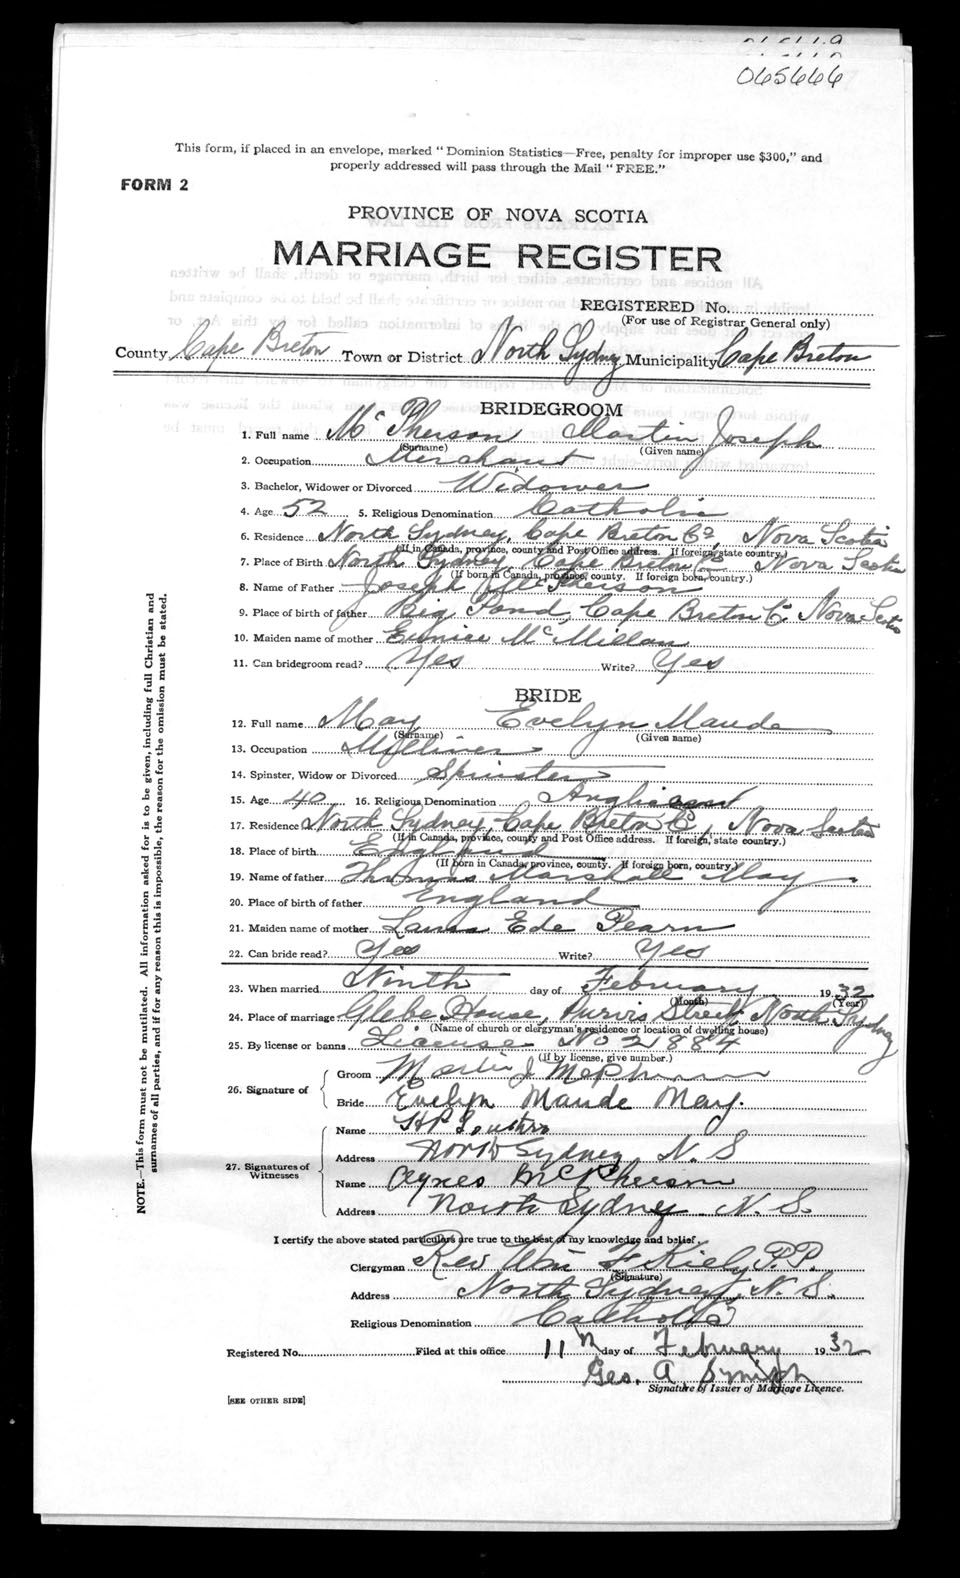 065666
This form, if placed in an envelope, marked " Dominion Statistics—Free, penalty for improper use $300," and
properly addressed will pass through the Mail " FREE."
FORM 2
PROVINCE OF NOVA SCOTIA
MARRIAGE REGISTER
REGISTERED No.
(For use of Registrar General only)
County Cape Breton Town or District North Sydney Municipality Cape Breton
BRIDEGROOM
1. Full name McPherson Martin Joseph
(Surname) (Given name)
2. Occupation Merchant
3. Bachelor, Widower or Divorced Widower
4. Age 52 5. Religious Denomination Catholic
6. Residence North Sydney, Cape Breton Co, Nova Scotia
(If in Canada, province, county and Post Office address. If foreign, state country.)
7. Place of Birth North Sydney Cape Breton Co Nova Scotia
(If born in Canada, province, county. If foreign born, country.)
8. Name of Father Joseph McPherson
9. Place of birth of father Big Pond, Cape Breton Co Nova Scotia
10. Maiden name of mother Eunice McMillan
11. Can bridegroom read? Yes Write? Yes
BRIDE
12. Full name May Evelyn Maude
(Surname) (Given name)
13. Occupation Milliner
14. Spinster, Widow or Divorced Spinster
15. Age 40 16. Religious Denomination Anglican
17. Residence North Sydney, Cape Breton Co, Nova Scotia
(If in Canada, province, county and Post Office address. If foreign, state country.)
18. Place of birth England
(If born in Canada, province, county. If foreign born, country.)
19. Name of father Thomas Marshall May
20. Place of birth of father England
21. Maiden name of mother Laura Ede Pearn
22. Can bride read? Yes Write? Yes
23. When married Ninth day of February 1932
(Month) (Year)
24. Place of marriage Glebe House, Purvis Street, North Sydney
(Name of church or clergyman's residence or location of dwelling house)
25. By license or banns License No 2884
(If by license, give number.)
26. Signature of
Groom Martin J McPherson
Bride Evelyn Maude May.
27. Signatures of Witnesses
Name H P
Address North Sydney, N. S
Name Agnes McPherson
Address North Sydney N. S.
I certify the above stated particulars are true to the best of my knowledge and belief.
Clergyman Rev Wm F Kiely P.P.
(Signature)
Address North Sydney, N. S.
Religious Denomination Catholic
Registered No. Filed at this office 11th day of February 1932
Geo. A.
Signature of Issuer of Marriage Licence.
[SEE OTHER SIDE]
NOTE.—This form must not be mutilated. All information asked for is to be given, including full Christian and
surnames of all parties, and if for any reason this is impossible, the reason for the omission must be stated.